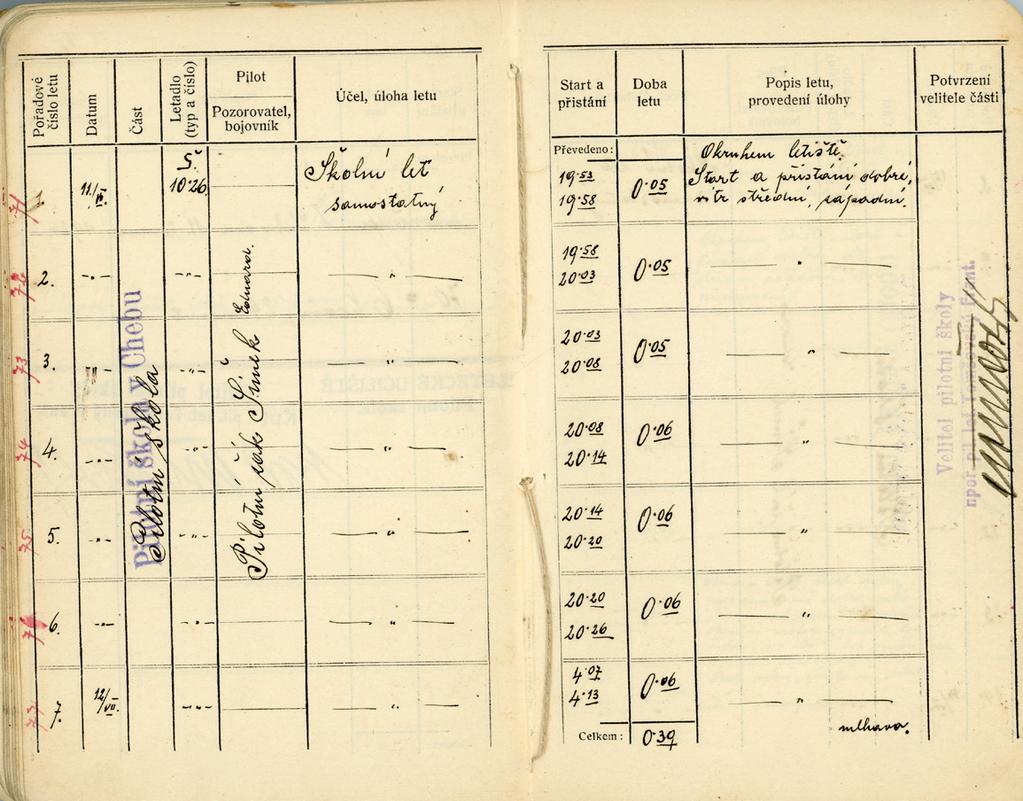 Pořadové číslo letu
Datum
Část
Letadlo (typ a číslo)
Pilot
Pozorovatel, bojovník
Účel, úloha letu
71 1. 11./ Š 10·26 Školní let
samostatný
72 2. -„- -„- — „ —
73 3. „ -„- — „ —
74 4. -„- -„- — „ —
75 5. -„- -„- — „ —
76 6. -„- -„- — „ —
7. 12./VII. -„- — „ —
Pilotní škola v Chebu
Pilotní škola
Pilotní žák Šimek Eduard.
Start a přistání
Doba letu
Popis letu, provedení úlohy
Potvrzení velitele části
Převedeno:
Okruhem letiště.
19·53 0·05 Start a přistání dobré,
19·58 vítr střední, západní.
19·58 0·05 — „ —
20·03
20·03 0·05 — „ —
20·08
20·08 0·06 — „ —
20·14
20·14 0·06 — „ —
20·20
20·20 0·06 — „ —
20·26
4·07 0·06 — „ —
4·13
mlhavo.
Celkem: 0·39
Velitel pilotní školy
npor. pil. let.